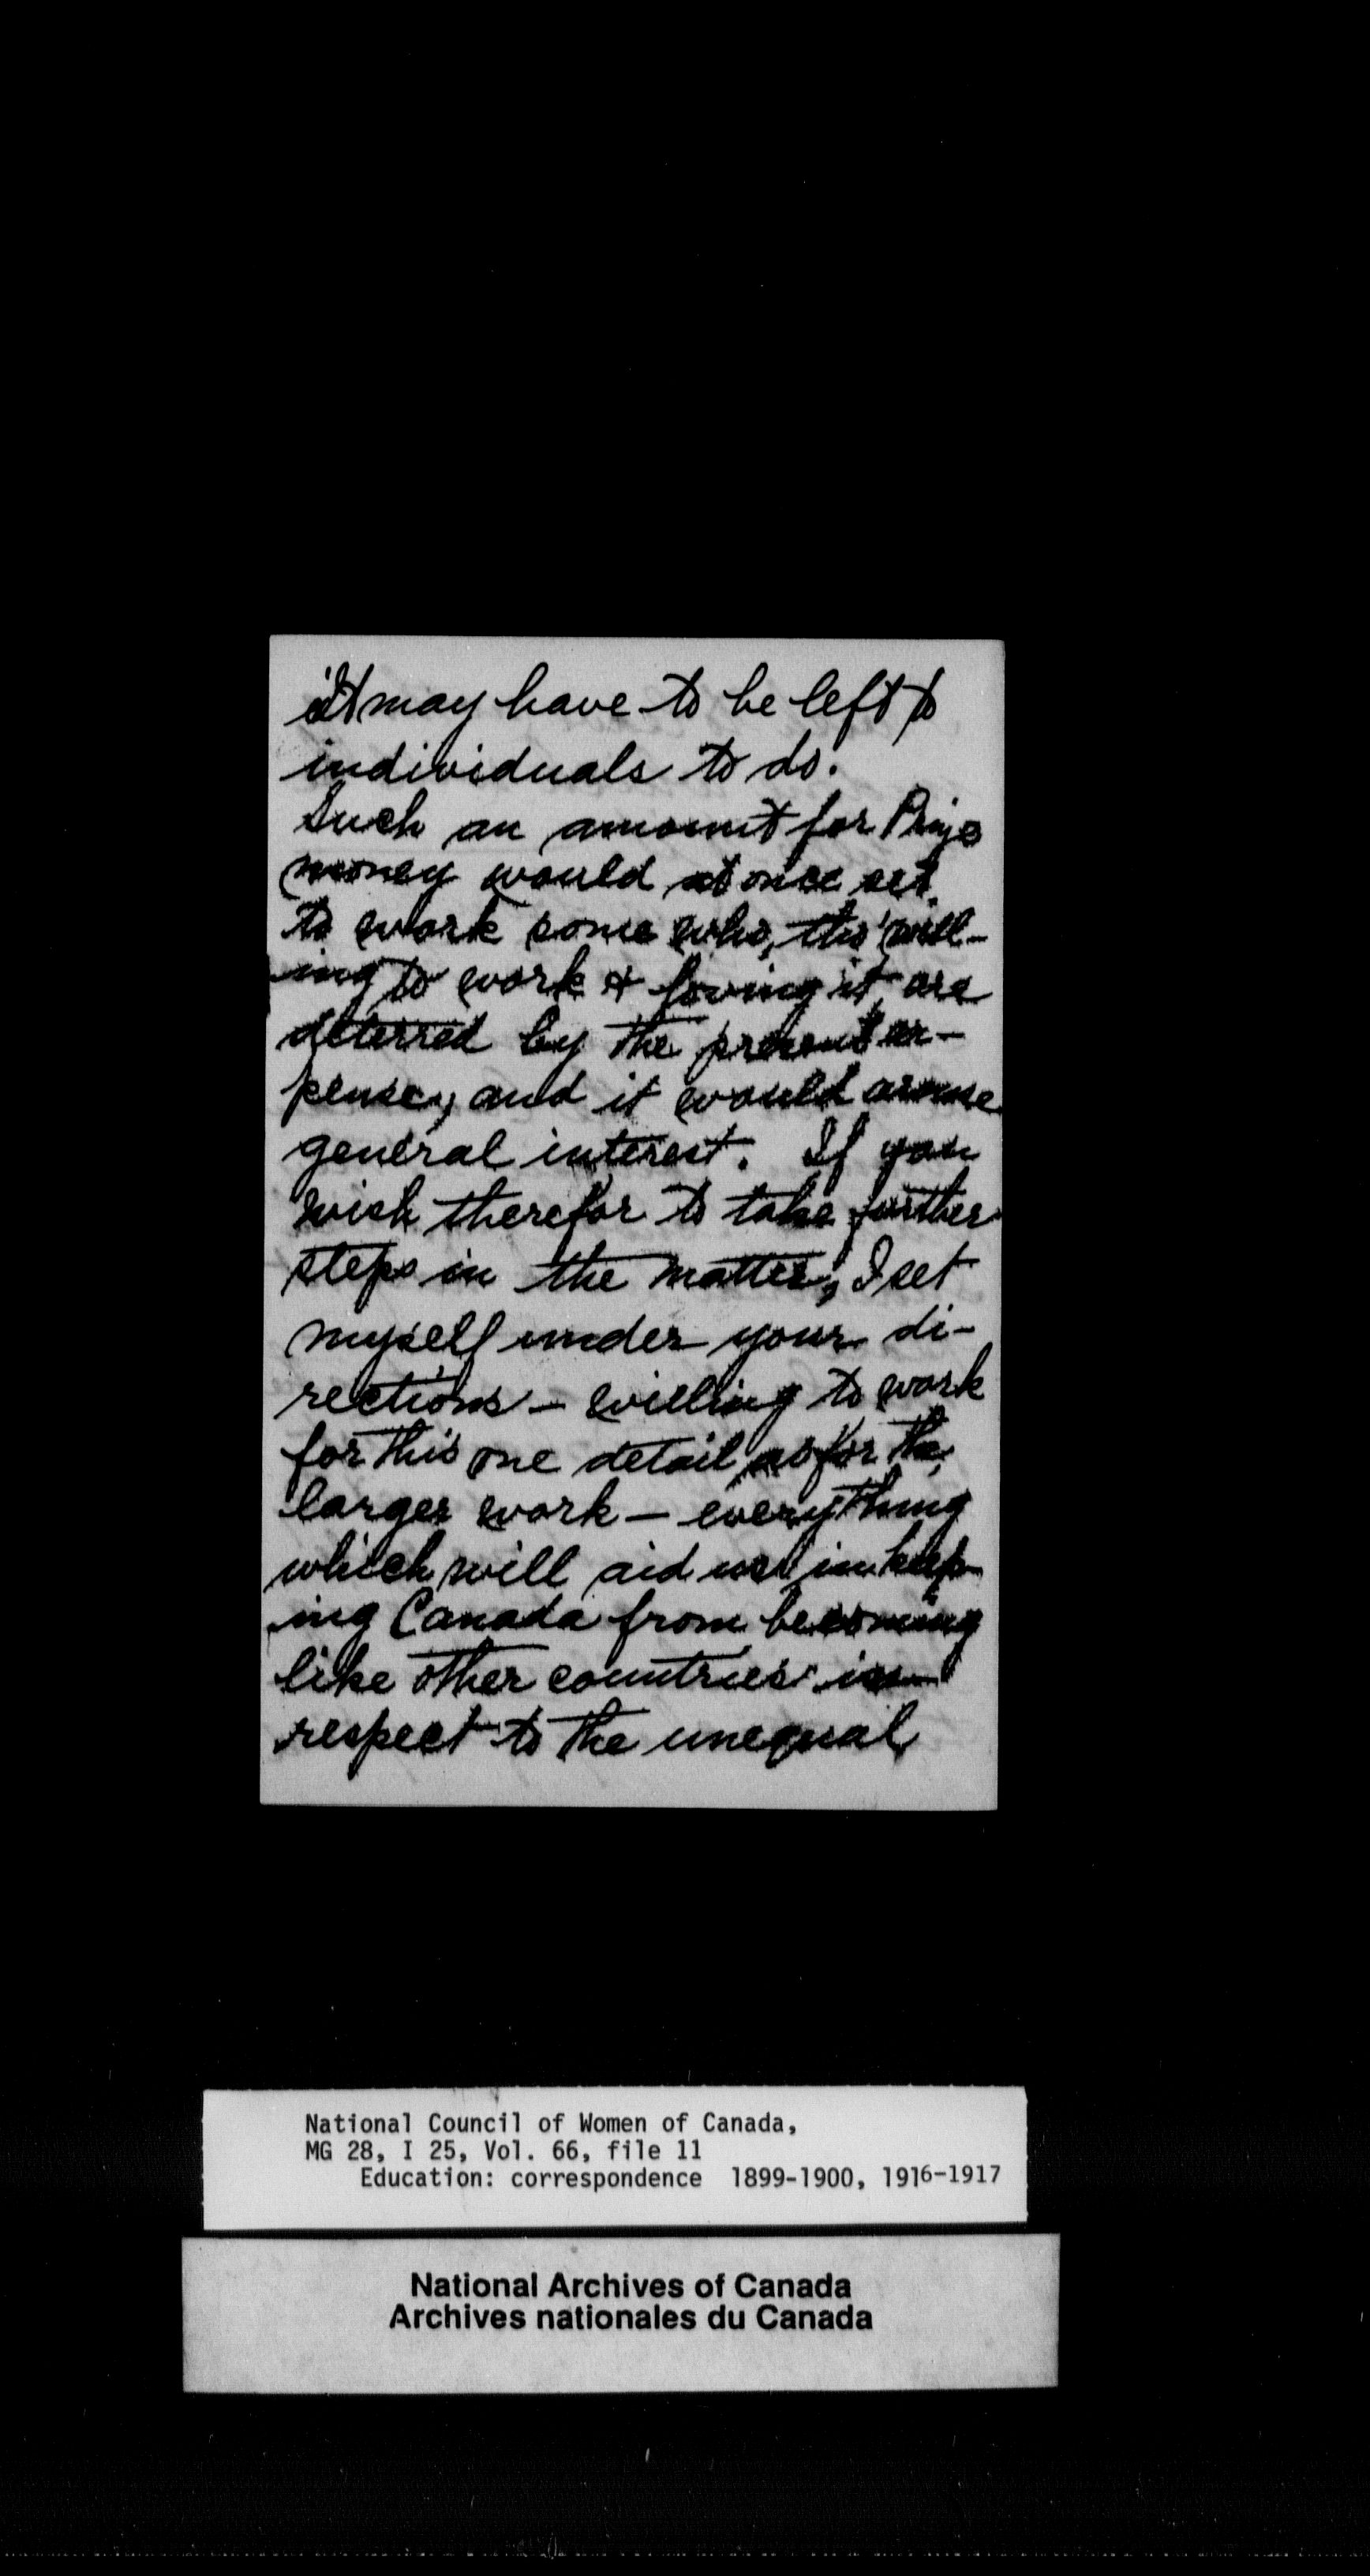 it may have to be left to
individuals to do.
Such an amount for Prize
money would at once set
to work some who, tho' will-
ing to work & loving it are
deterred by the present ex-
pense, and it would arouse
general interest. If you
wish therefor to take further
steps in the matter, I set
myself under your di-
rections – willing to work
for this one detail as for the
larger work – everything
which will aid us in keep-
ing Canada from becoming
like other countries in
respect to the unequal
National Council of Women of Canada,
MG 28, I 25, Vol. 66, file 11
Education: correspondence 1899-1900, 1916-1917
National Archives of Canada
Archives nationales du Canada